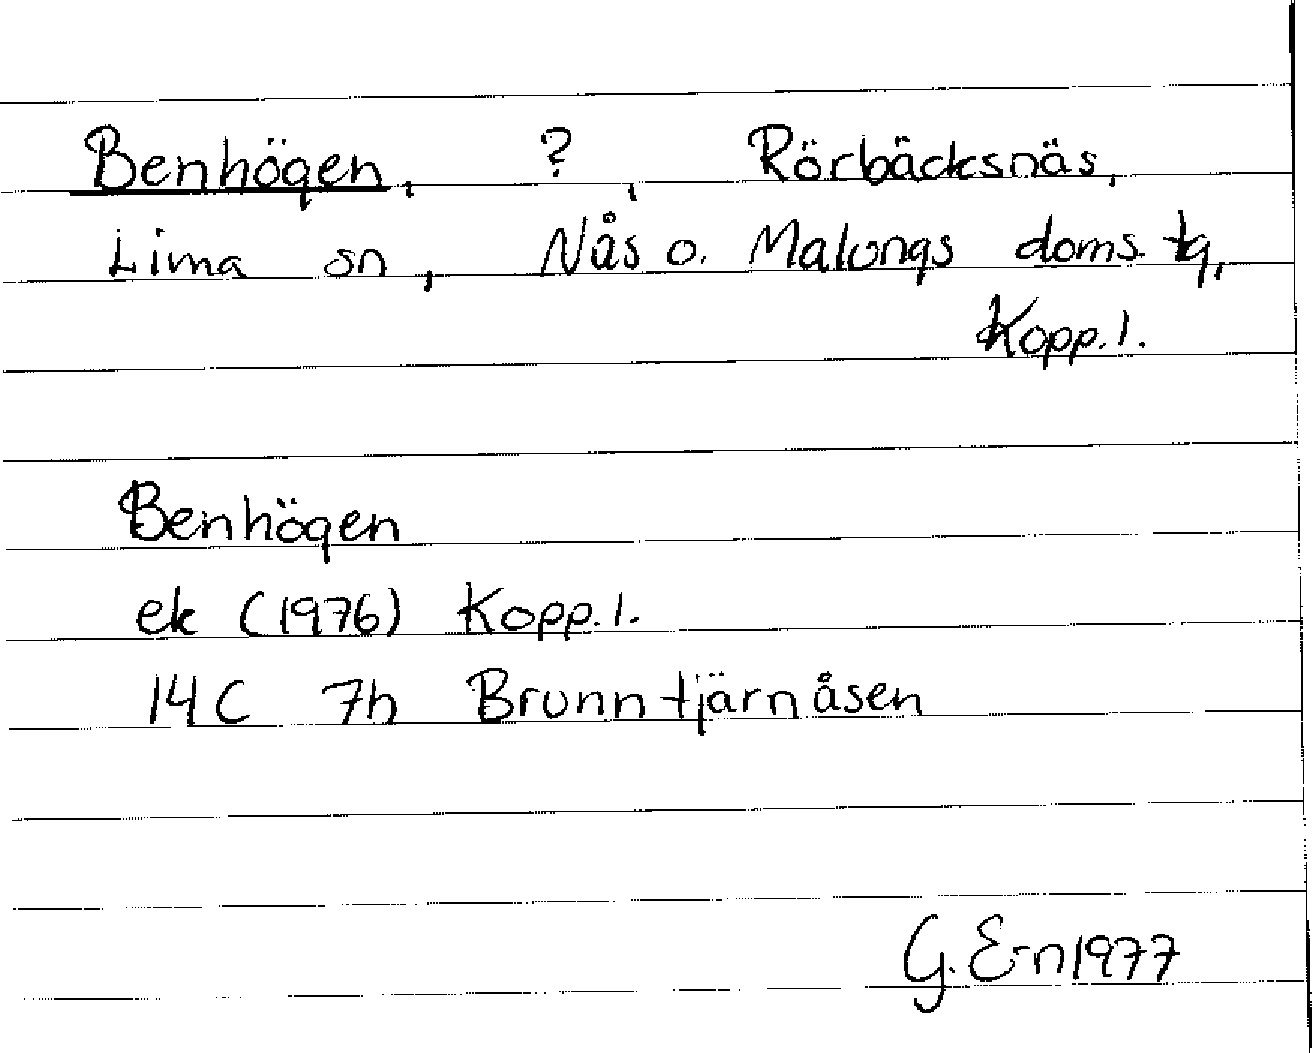 Benhögen, ?, Rörbäcksnäs,
Lima sn, Nås o. Malungs doms. tg,
Kopp. l.
Benhögen
ek (1976) Kopp. l.
14C 7h Brunntjärnåsen
G. E-n 1977